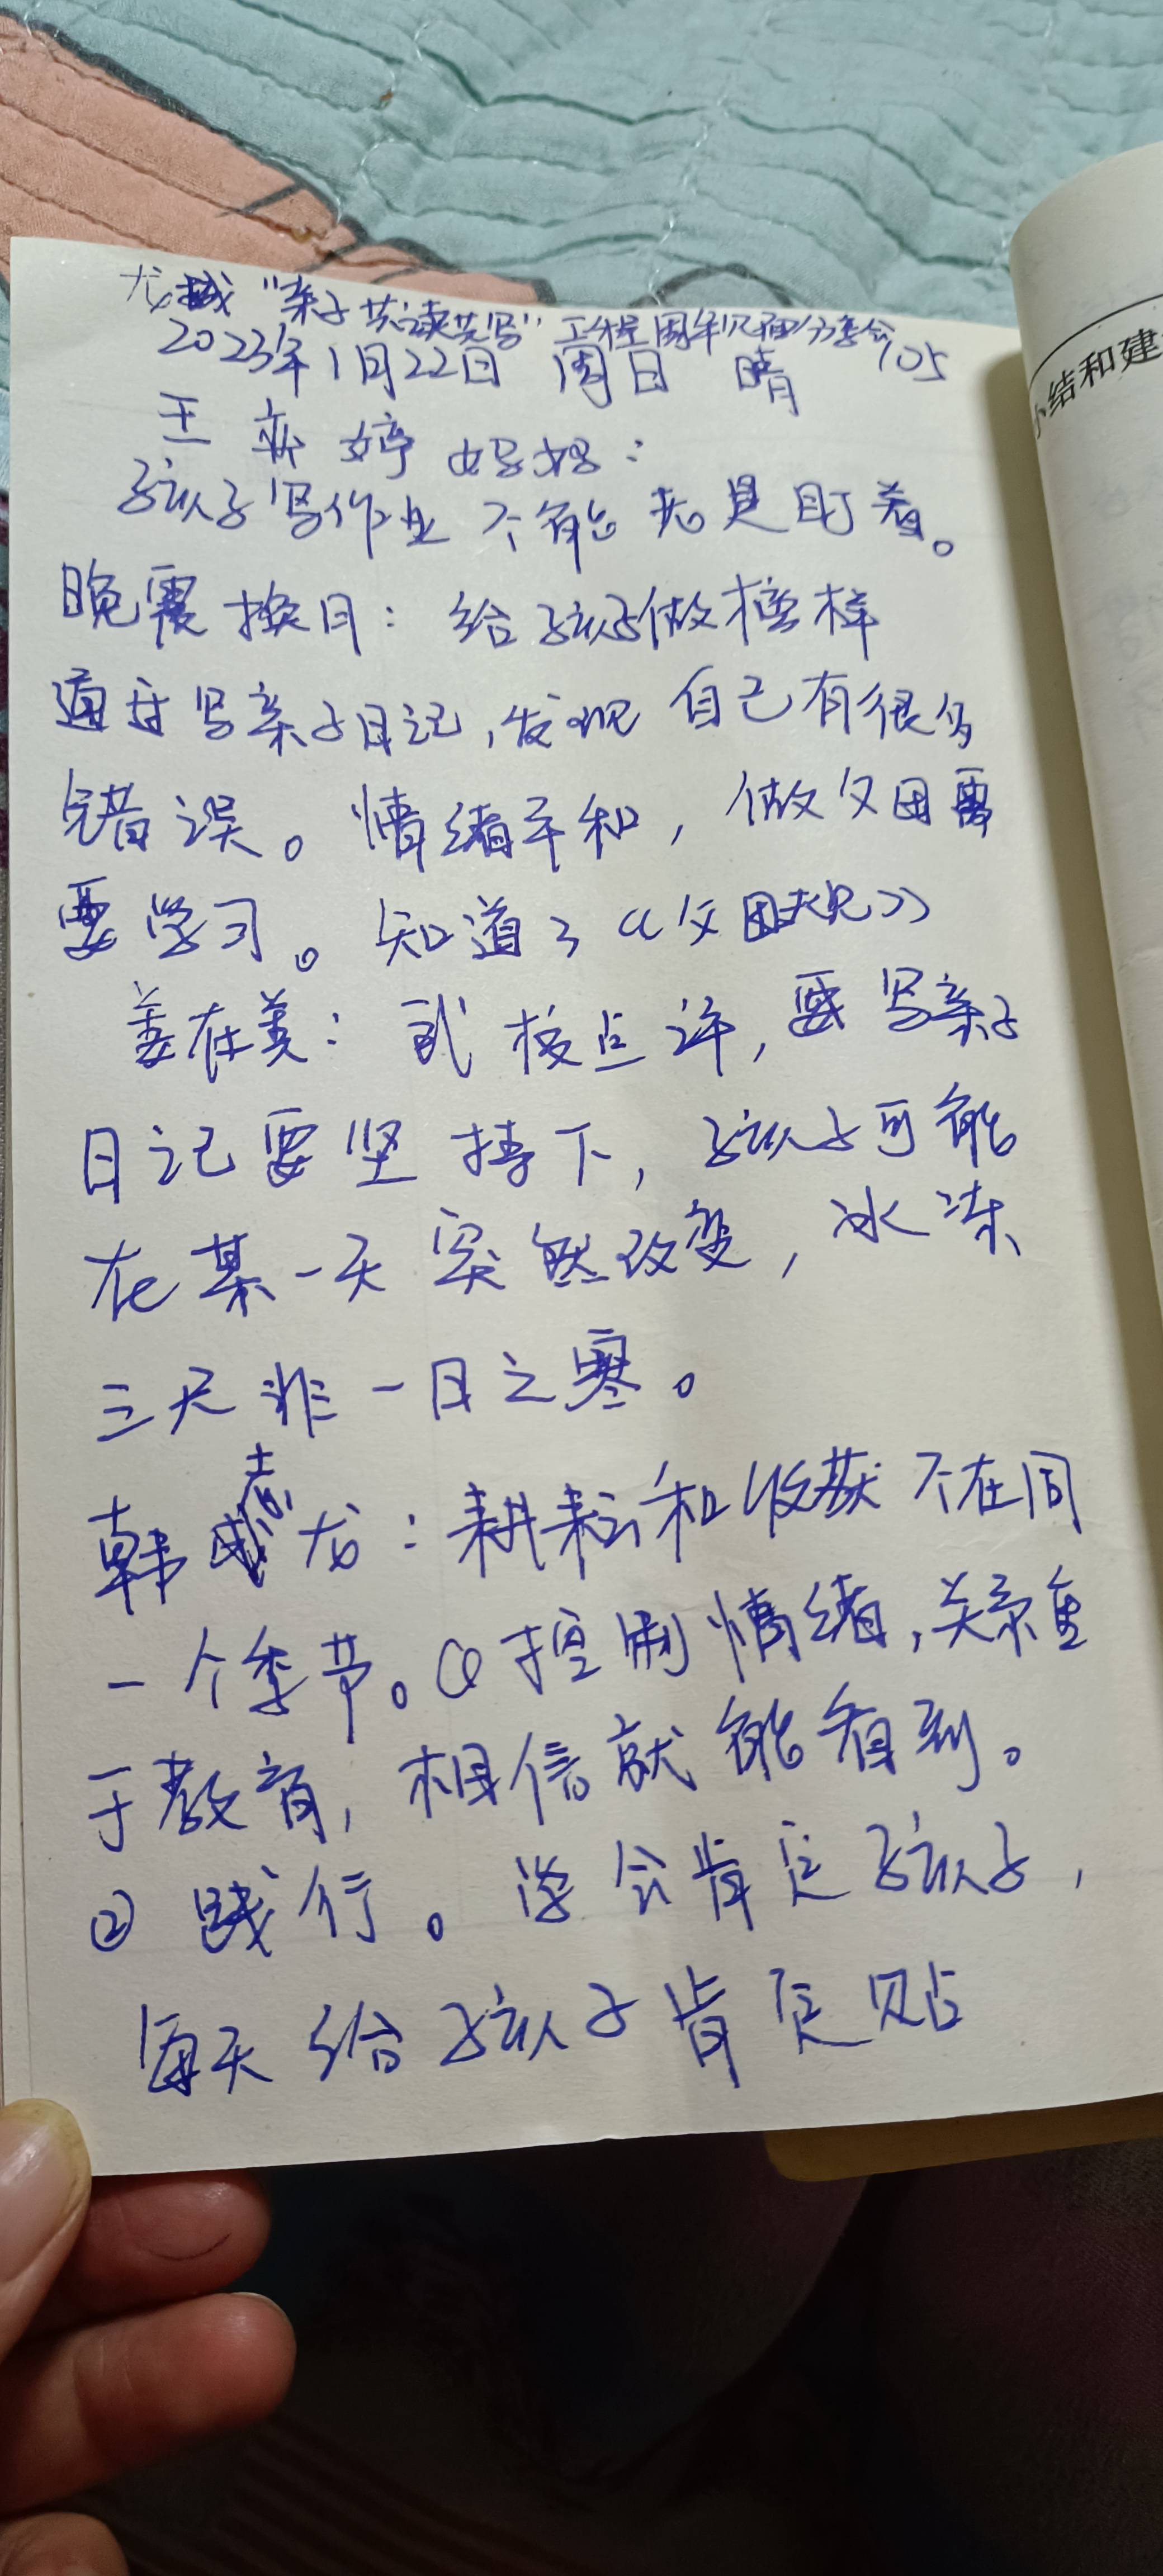 龙城“亲子共读共写”工程周年见面分享会
2023年1月22日 周日 晴 105
王亦婷妈妈：
孩子写作业不能老是盯着。
晚霞换月：给孩子做榜样
通过写亲子日记，发现自己有很多
错误。情绪平和，做父母需
要学习。知道了《父母规》
姜在美：武校点评，要写亲子
日记要坚持下，孩子可能
在某一天突然改变，冰冻
三尺非一日之寒。
韩志龙：耕耘和收获不在同
一个季节。①控制情绪，关系重
于教育，相信就能看到。
②践行。学会肯定孩子，
每天给孩子肯定贴
小结和建